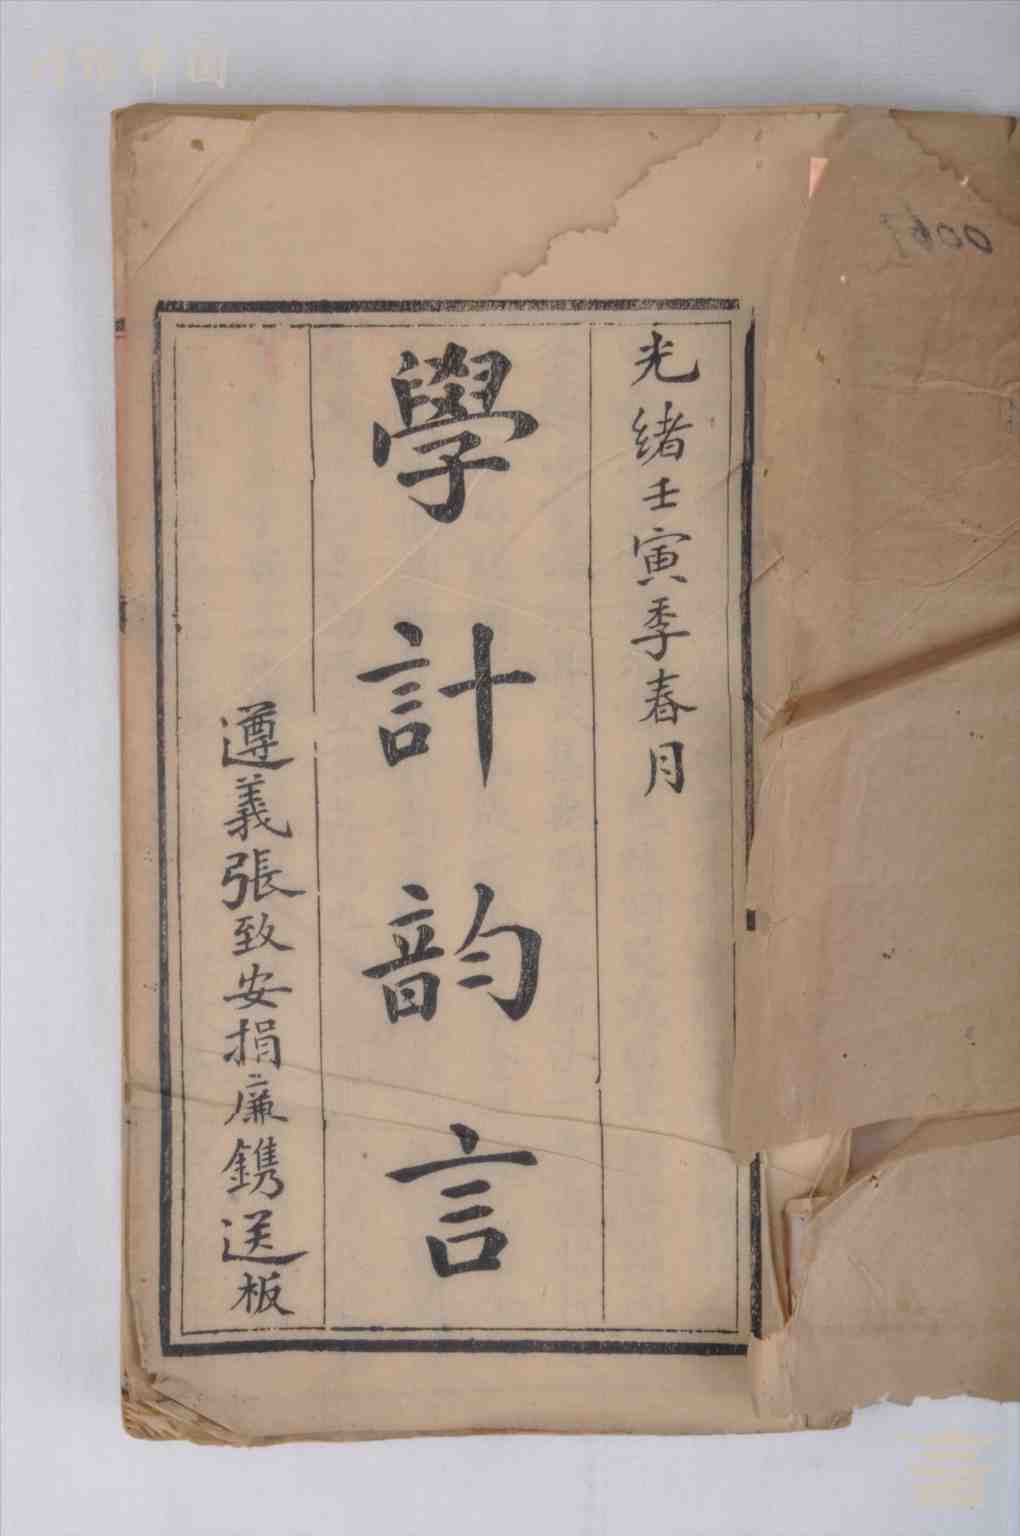 光緒壬寅季春月
學計韵言
遵義張致安捐廉鐫送板